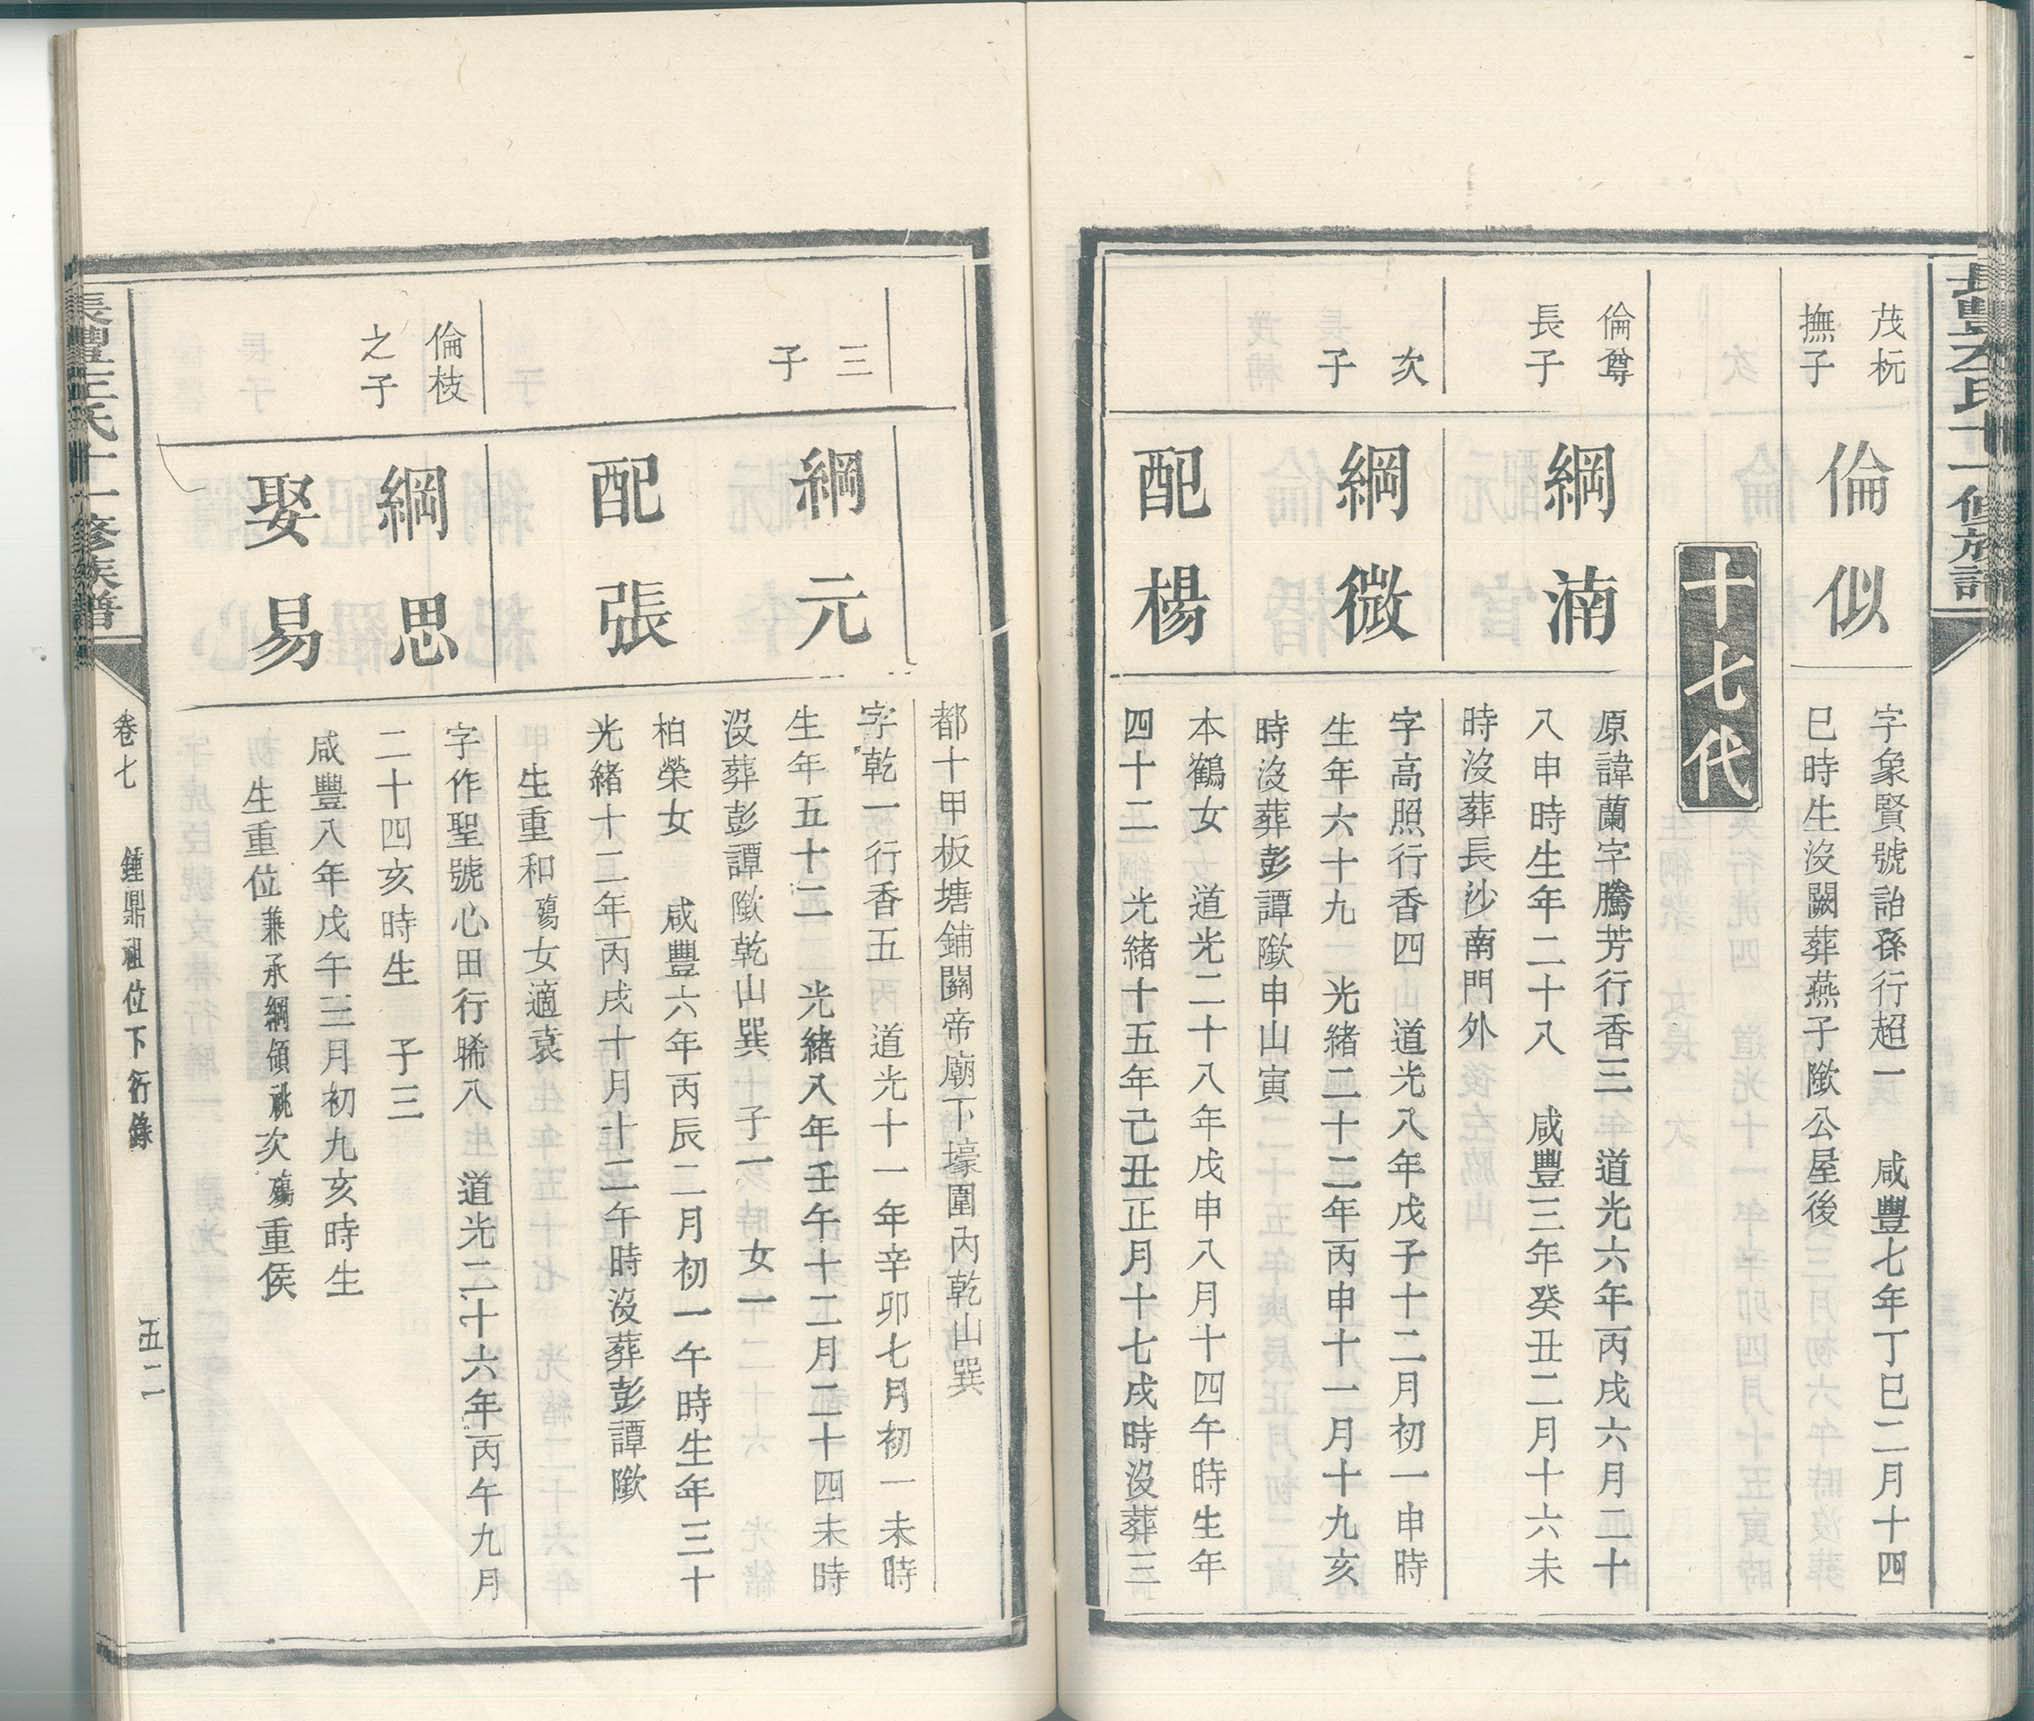 茂杬
撫子
倫似
字象賢號詒孫行超一　咸豐七年丁巳二月十四
巳時生沒闕葬燕子𨻶公屋後
十七代
倫尊
長子
綱湳
原諱蘭字騰芳行香三　道光六年丙戌六月二十
八申時生年二十八　咸豐三年癸丑二月十六未
時沒葬長沙南門外
次
子
綱微
字高照行香四　道光八年戊子十二月初一申時
生年六十九　光緒二十二年丙申十一月十九亥
時沒葬彭譚𨻶申山寅
配楊
本鶴女　道光二十八年戊申八月十四午時生年
四十二　光緒十五年己丑正月十七戌時沒葬三
都十甲板塘鋪關帝廟下壕圍內乾山巽
三
子
綱元
字乾一行香五　道光十一年辛卯七月初一未時
生年五十二　光緒八年壬午十二月二十四未時
沒葬彭譚𨻶乾山巽　子一　女一
配張
柏榮女　咸豐六年丙辰二月初一午時生年三十
光緒十二年丙戌十月十二午時沒葬彭譚𨻶
生重和殤女適袁
倫枝
之子
綱思
字作聖號心田行晞八　道光二十六年丙午九月
二十四亥時生　子三
娶易
咸豐八年戊午三月初九亥時生
生重位兼承綱領祧次殤重侯
氏十一修族譜
卷七　鍾鼎祖位下行錄　五二